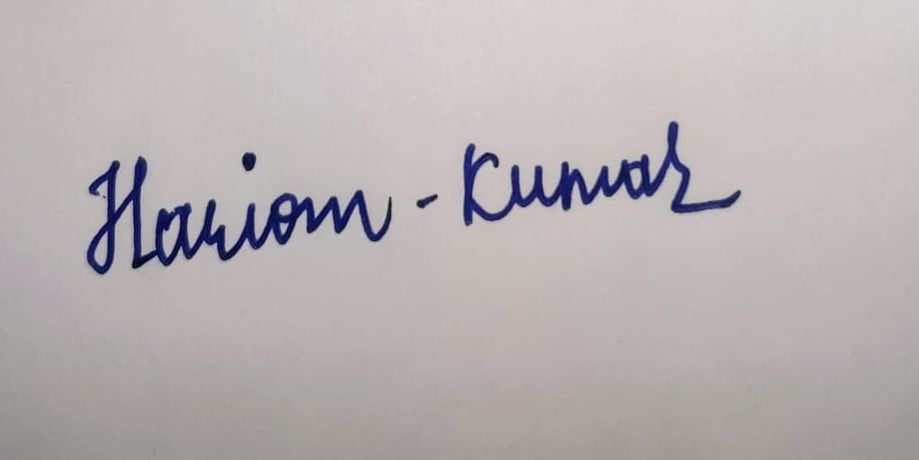 Hariom - Kumar